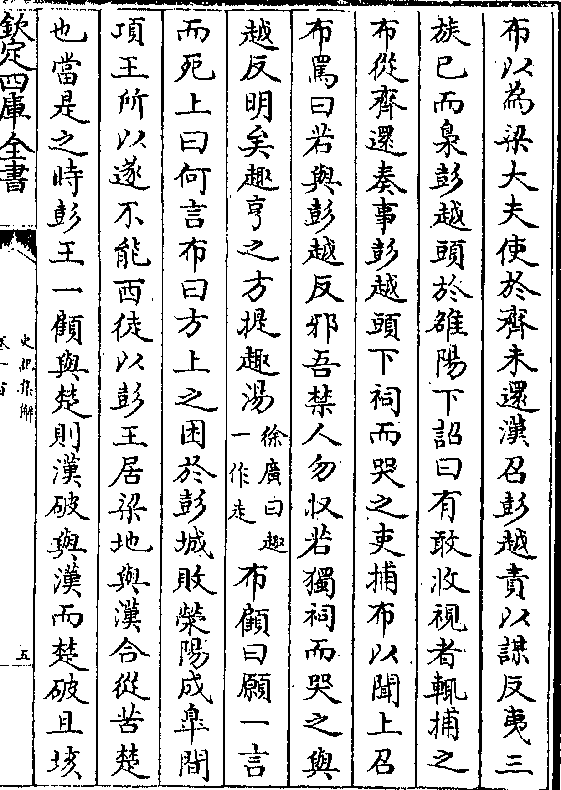 布以為梁大夫使於齊未還漢召彭越責以謀反夷三
族已而梟彭越頭於雒陽下詔曰有敢收視者輒捕之
布從齊還奏事彭越頭下祠而哭之吏捕布以聞上召
布罵曰若與彭越反邪吾禁人勿收若獨祠而哭之與
越反明矣趣亨之方提趣湯徐廣曰趣一作走布顧曰願一言
而死上曰何言布曰方上之困於彭城敗滎陽成臯間
項王所以遂不能西徒以彭王居梁地與漢合從苦楚
也當是之時彭王一顧與楚則漢破與漢而楚破且垓
欽定四庫全書
史記集解
卷一百
五